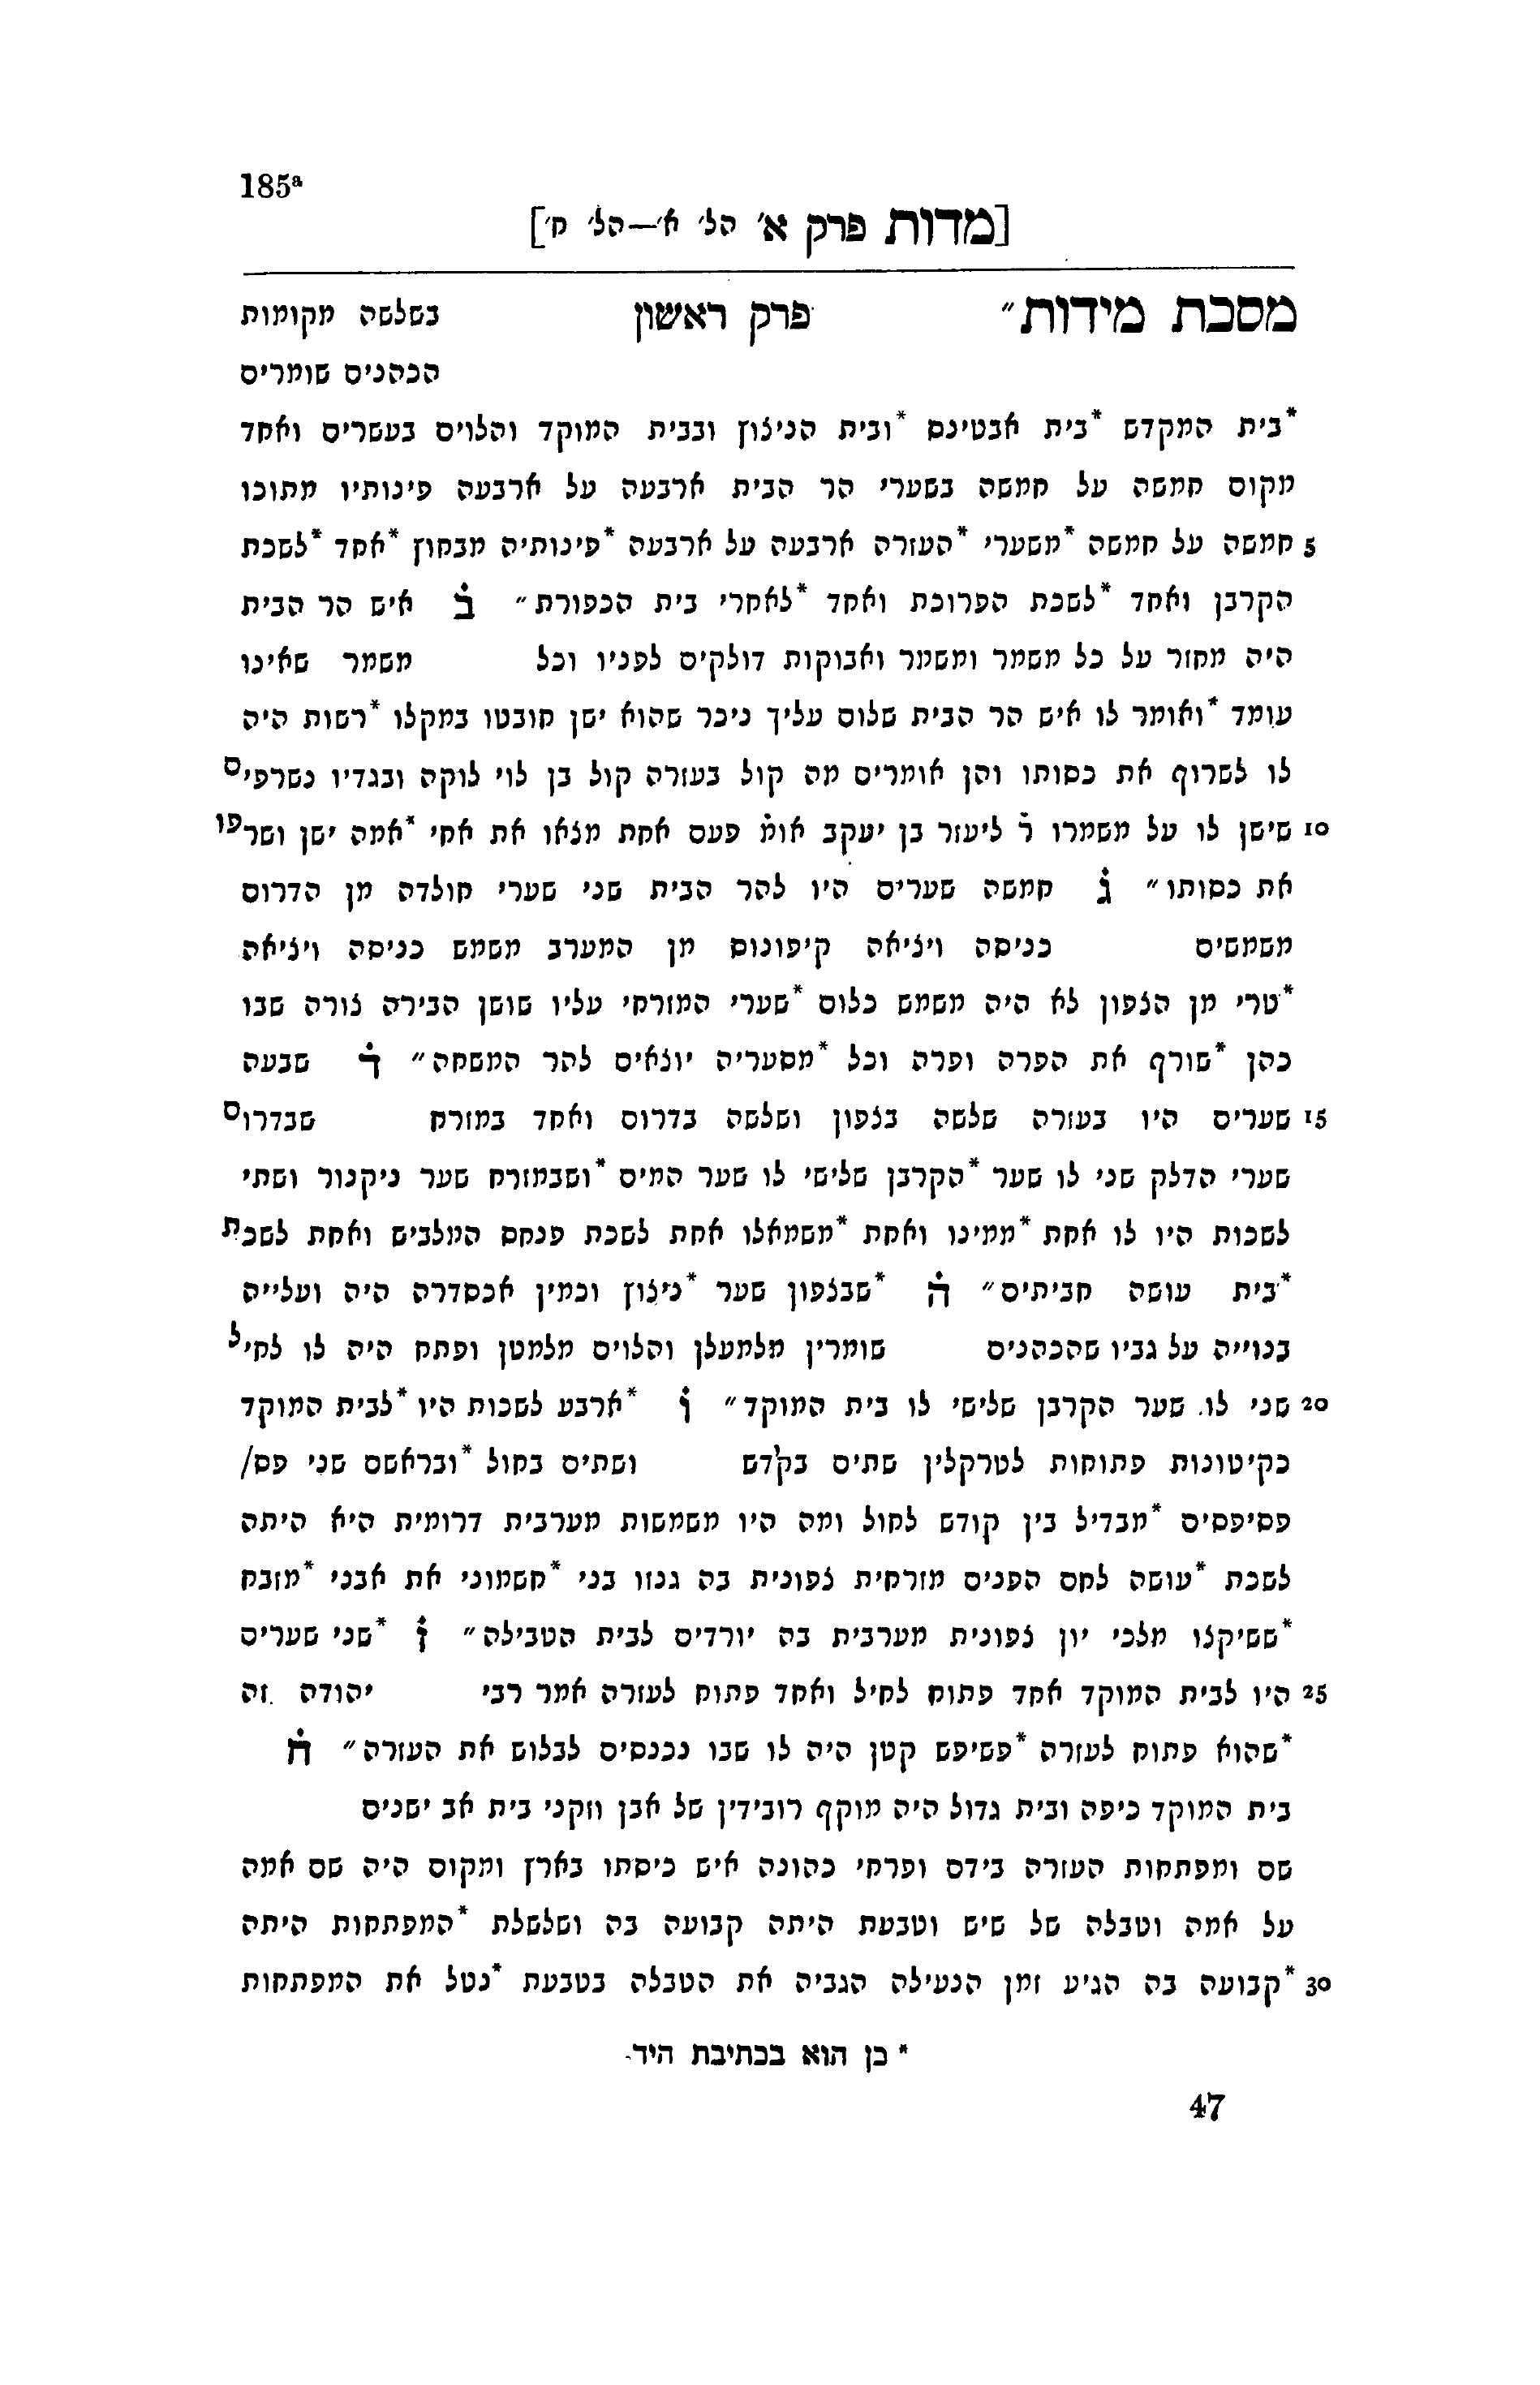 185ª
[מדות פרק א' הל' א'—הל' ח']
מסכת מידות״ פרק ראשון בשלשה מקומות
הכהנים שומרים
*בית המקדש *בית אבטינס *ובית הניצוץ ובבית המוקד והלוים בעשרים ואחד
מקום חמשה על חמשה בשערי הר הבית ארבעה על ארבעה פינותיו מתוכו
5 חמשה על חמשה *משערי *העזרה ארבעה על ארבעה *פינותיה מבחוץ *אחד *לשכת
הקרבן ואחד *לשכת הפרוכת ואחד *לאחרי בית הכפורת״ ב̇ איש הר הבית
היה מחזר על כל משמר ומשמר ואבוקות דולקים לפניו וכל משמר שאינו
עומד *ואומר לו איש הר הבית שלום עליך ניכר שהוא ישן חובטו במקלו *רשות היה
לו לשרוף את כסותו והן אומרים מה קול בעזרה קול בן לוי לוקה ובגדיו נשרפים
10 שישן לו על משמרו ר̇ ליעזר בן יעקב אומ̇ פעם אחת מצאו את אחי *אמה ישן ושרפו
את כסותו״ ג̇ חמשה שערים היו להר הבית שני שערי חולדה מן הדרום
משמשים כניסה ויציאה קיפונוס מן המערב משמש כניסה ויציאה
*טרי מן הצפון לא היה משמש כלום *שערי המזרחי עליו שושן הבירה צורה שבו
כהן *שורף את הפרה ופרה וכל *מסעריה יוצאים להר המשחה״ ד̇ שבעה
15 שערים היו בעזרה שלשה בצפון ושלשה בדרום ואחד במזרח שבדרום
שערי הדלק שני לו שער *הקרבן שלישי לו שער המים *ושבמזרח שער ניקנור ושתי
לשכות היו לו אחת *ממינו ואחת *משמאלו אחת לשכת פנחס המלביש ואחת לשכת
*בית עושה חביתים״ ה̇ *שבצפון שער *ניצוץ וכמין אכסדרה היה ועלייה
בנוייה על גביו שהכהנים שומרין מלמעלן והלוים מלמטן ופתח היה לו לחיל
20 שני לו שער הקרבן שלישי לו בית המוקד״ ו̇ *ארבע לשכות היו *לבית המוקד
כקיטונות פתוחות לטרקלין שתים בקדש ושתים בחול *ובראשם שני פס/
פסיפסים *מבדיל בין קודש לחול ומה היו משמשות מערבית דרומית היא היתה
לשכת *עושה לחם הפנים מזרחית צפונית בה גנזו בני *חשמוני את אבני *מזבח
*ששיקצו מלכי יון צפונית מערבית בה יורדים לבית הטבילה״ ז̇ *שני שערים
25 היו לבית המוקד אחד פתוח לחיל ואחד פתוח לעזרה אמר רבי יהודה זה
*שהוא פתוח לעזרה *פשיפש קטן היה לו שבו נכנסים לבלוש את העזרה״ ח̇
בית המוקד כיפה ובית גדול היה מוקף רובידין של אבן וזקני בית אב ישנים
שם ומפתחות העזרה בידם ופרחי כהונה איש כיסתו בארץ ומקום היה שם אמה
על אמה וטבלה של שיש וטבעת היתה קבועה בה ושלשלת *המפתחות היתה
30 *קבועה בה הגיע זמן הנעילה הגביה את הטבלה בטבעת *נטל את המפתחות
* כן הוא בכתיבת היד.
47